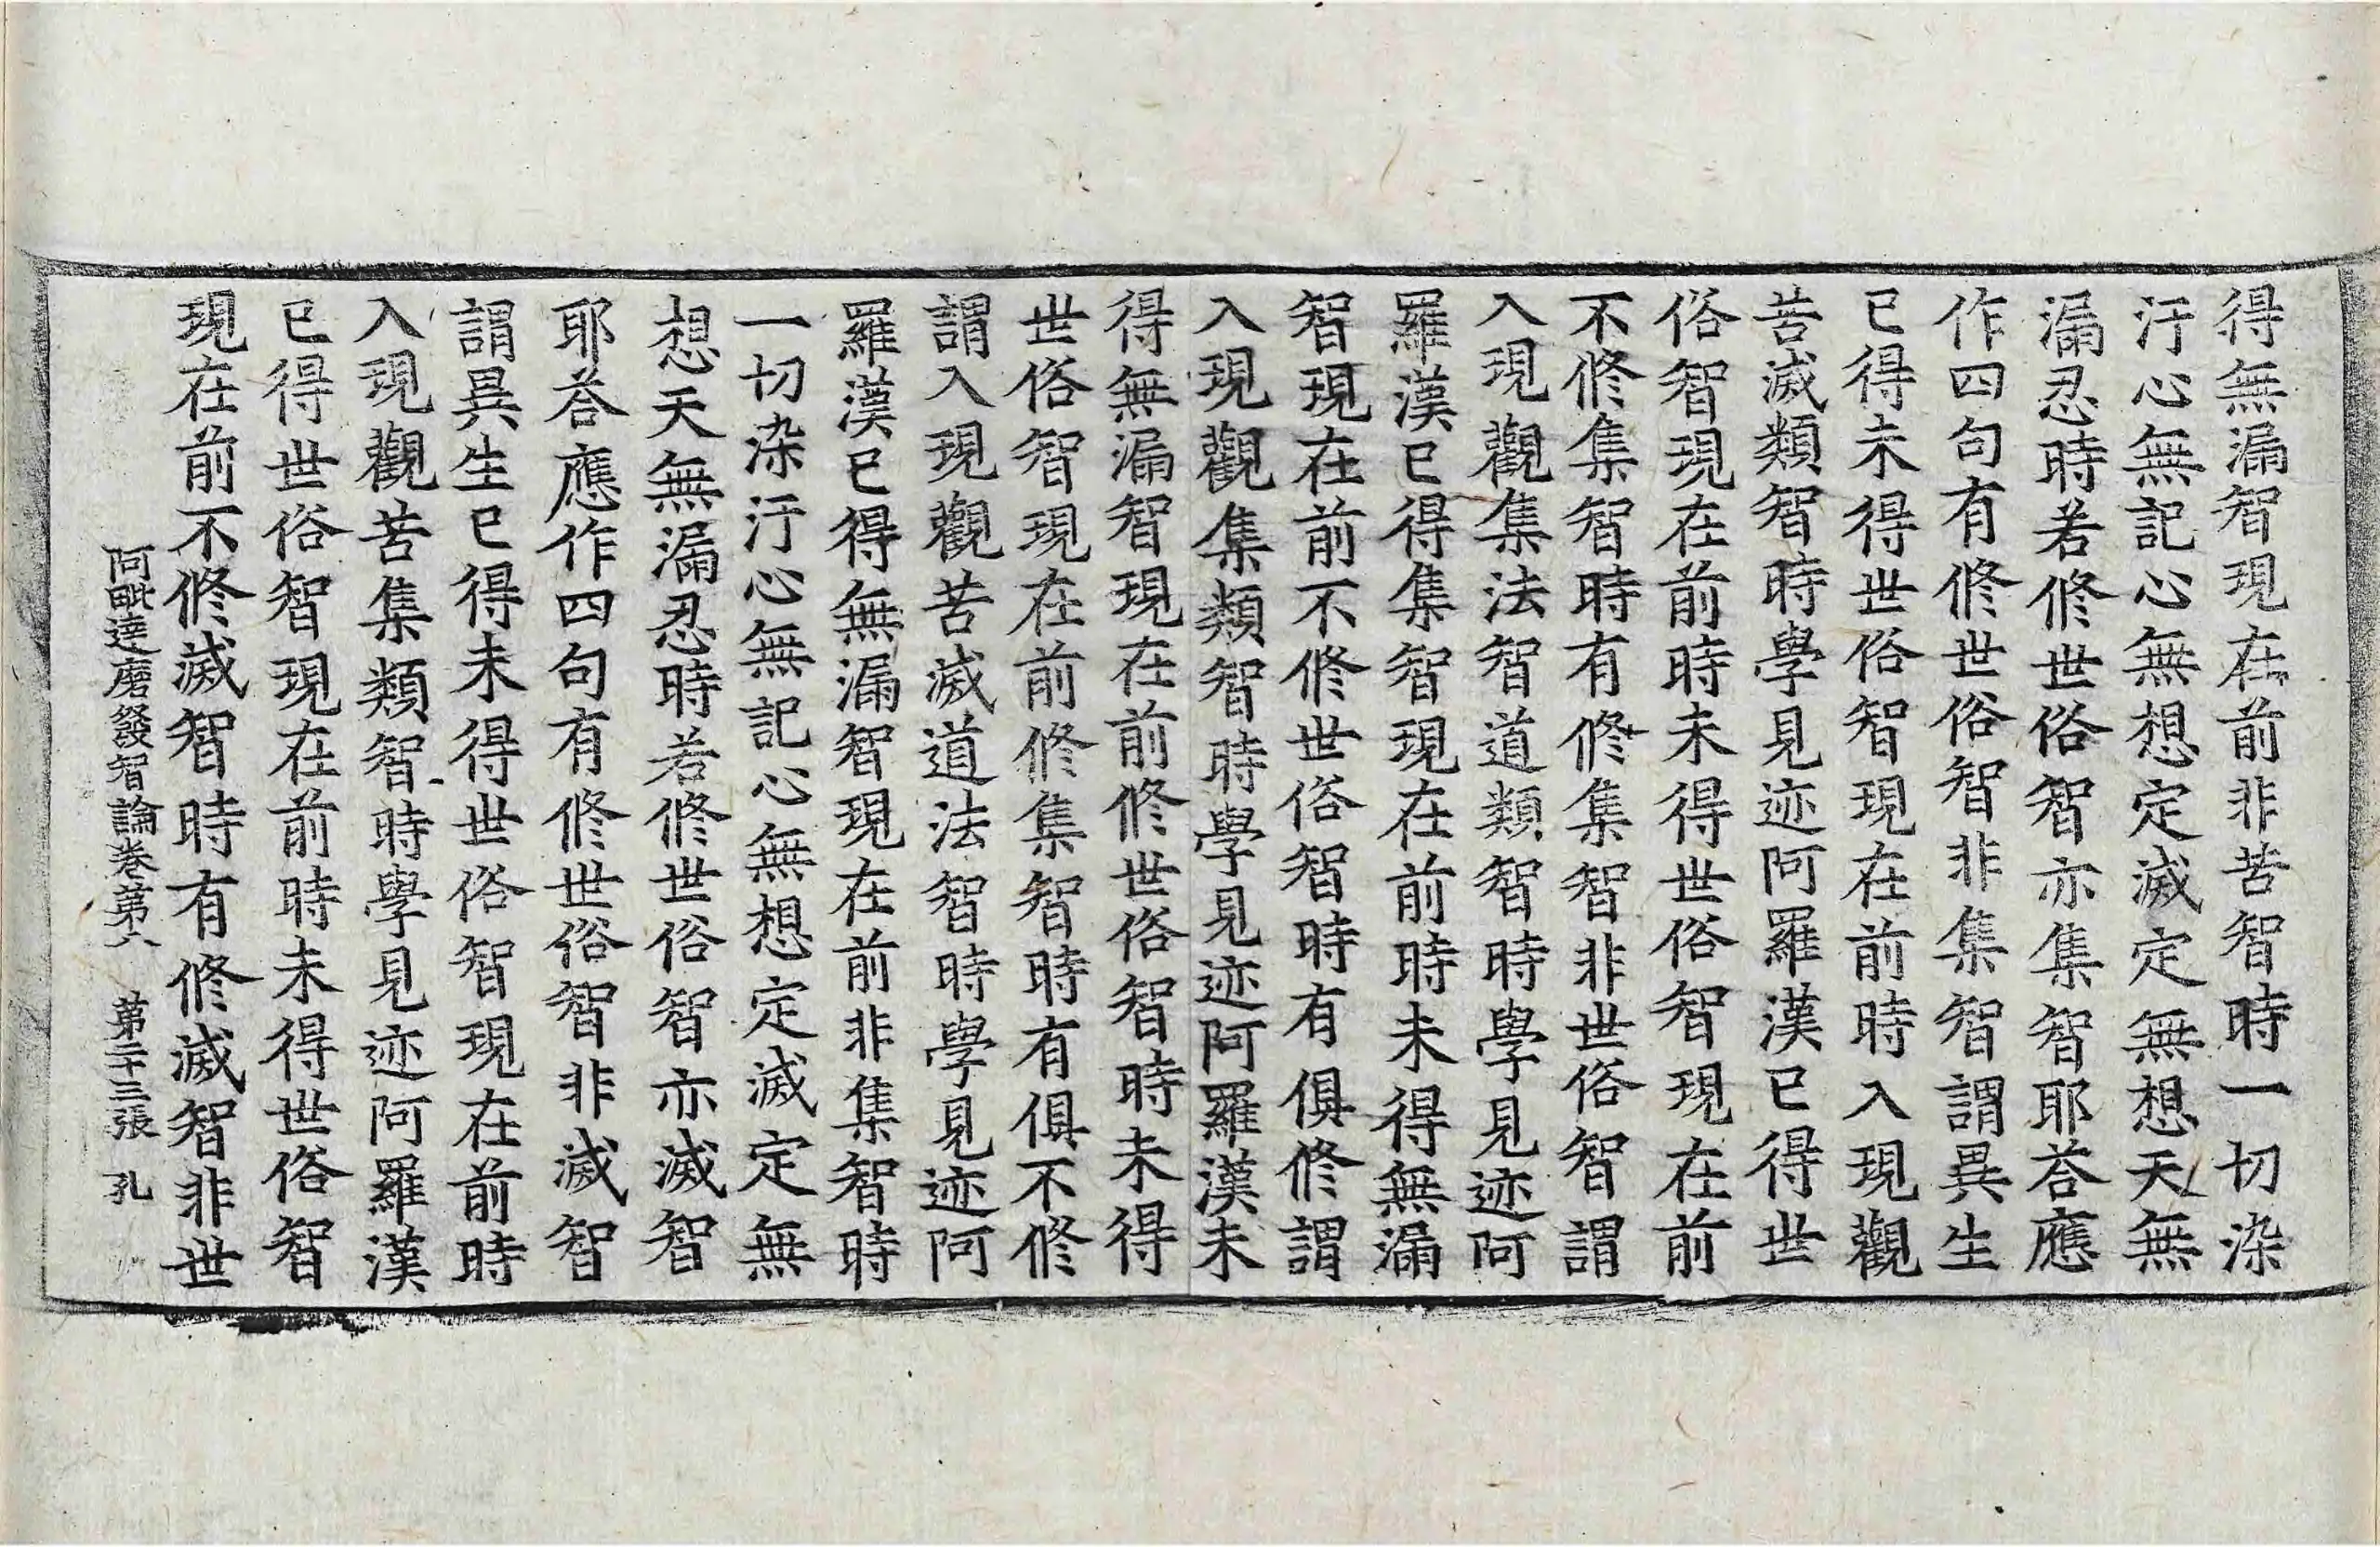 得無漏智現在前非苦智時一切染
汙心無記心無想定滅定無想天無
漏忍時若修世俗智亦集智耶荅應
作四句有修世俗智非集智謂異生
已得未得世俗智現在前時入現觀
苦滅類智時學見迹阿羅漢已得世
俗智現在前時未得世俗智現在前
不修集智時有修集智非世俗智謂
入現觀集法智道類智時學見迹阿
羅漢已得集智現在前時未得無漏
智現在前不修世俗智時有俱修謂
入現觀集類智時學見迹阿羅漢未
得無漏智現在前修世俗智時未得
世俗智現在前修集智時有俱不修
謂入現觀苦滅道法智時學見迹阿
羅漢已得無漏智現在前非集智時
一切染汙心無記心無想定滅定無
想天無漏忍時若修世俗智亦滅智
耶荅應作四句有修世俗智非滅智
謂異生已得未得世俗智現在前時
入現觀苦集類智時學見迹阿羅漢
已得世俗智現在前時未得世俗智
現在前不修滅智時有修滅智非世
阿毗達磨發智論卷第六 第二十三張 孔